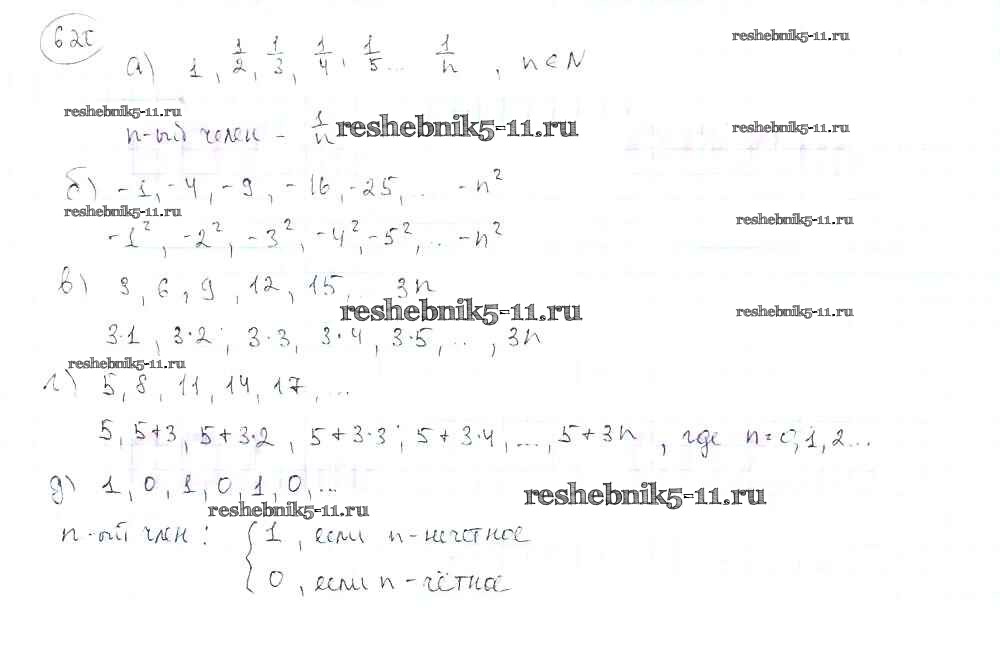 625
reshebnik5-11.ru
а) 1, 1/2, 1/3, 1/4, 1/5 ... 1/n, n∈N
reshebnik5-11.ru
n-ый член - 1/n reshebnik5-11.ru reshebnik5-11.ru
б) -1, -4, -9, -16, -25, ... -n²
reshebnik5-11.ru reshebnik5-11.ru
-1², -2², -3², -4², -5², ... -n²
в) 3, 6, 9, 12, 15, ... 3n
reshebnik5-11.ru reshebnik5-11.ru
3·1, 3·2, 3·3, 3·4, 3·5, ..., 3n
reshebnik5-11.ru
г) 5, 8, 11, 14, 17, ...
5, 5+3, 5+3·2, 5+3·3, 5+3·4, ..., 5+3n, где n=0, 1, 2...
д) 1, 0, 1, 0, 1, 0, ...
reshebnik5-11.ru reshebnik5-11.ru
n-ый член: { 1, если n-нечетное
0, если n-чётное